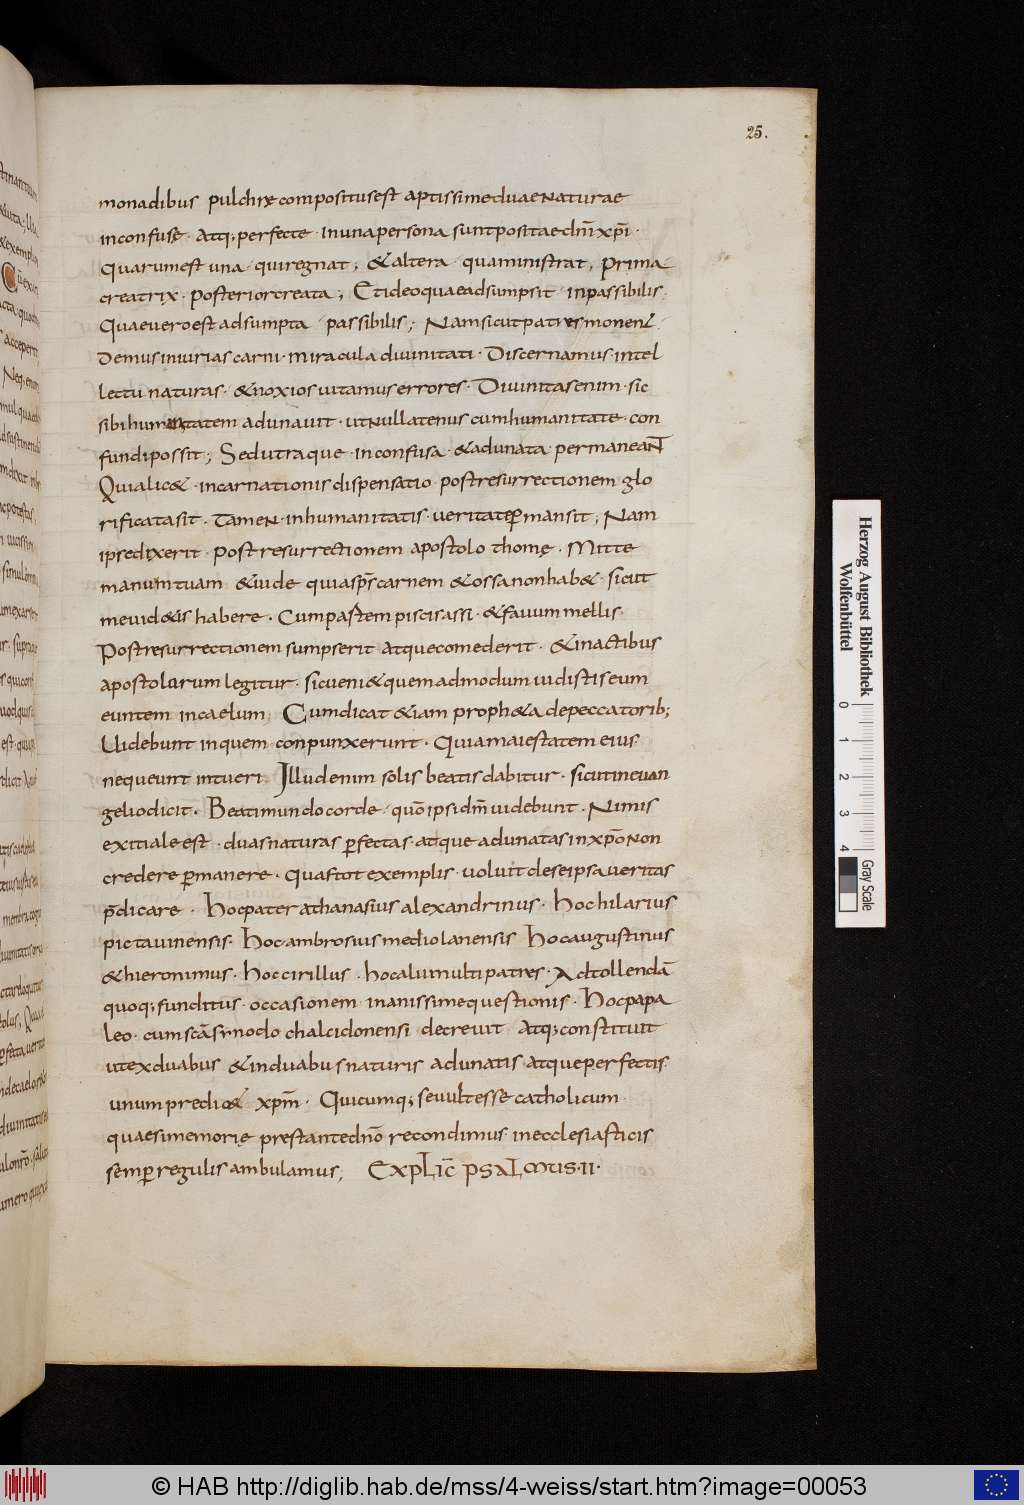 25.
monadibus pulchre compositus est aptissime duae naturae
inconfuse · atq; perfecte · in una persona sunt positae dn̄i xp̄i ·
Quarum est una · qui regnat; & altera · quaministrat, prima
creatrix · posterior creata; Et ideo quae adsumpsit · inpassibilis ·
Quae vero est adsumpta · passibilis; Nam sicut patres monent ·
Demus iniurias carni · miracula divinitati · Discernamus · intel
lectu naturas · & noxios vitamus errores · Divinitas enim · sic
sibi humanitatem adunavit · ut nullatenus cum humanitate · con
fundi possit; Sed utraque · inconfusa · & adunata permaneant
Quia lic& · incarnationis dispensatio · post resurrectionem glo
rificata sit · Tamen · in humanitatis · veritate ꝑmansit; Nam
ipse dixerit · post resurrectionem apostolo thomę · Mitte
manum tuam · & vide · quia sp̄s carnem & ossa non hab& · sicut
me vid&is habere · Cum partem piscis assi · & favum mellis ·
Post resurrectionem sumpserit atque comederit · & in actibus
apostolarum legitur · sic veni& quemadmodum vidistis eum
euntem in caelum; Cum dicat &iam proph&a de peccatorib;
Videbunt in quem · conpunxerunt · Quia maiestatem eius ·
nequeunt intueri · Illud enim solis beatis dabitur · sicut in evan
gelio dicit · Beati mundo corde · quō ipsi dm̄ videbunt · Nimis
exitiale est · duas naturas ꝑfectas · atque adunatas in xpō non
credere ꝑmanere · quas tot exemplis · voluit de se ipsa veritas
p̄dicare · Hoc pater athanasius alexandrinus · Hoc hilarius
pictavinensis · Hoc ambrosius mediolanensis Hoc augustinus
& hieronimus · hoc cirillus · hoc alii multi patres · Ad tollendā
quoq; funditus · occasionem inanissime questionis · Hoc papa
leo · cum scā synodo chalcidonensi decrevit atq; constituit
ut ex duabus & in duabus naturis adunatis · atque perfectis ·
unum predic& xpm̄ · Quicumq; se vult esse catholicum ·
quaesi memorię prestante dn̄o recondimus in ecclesiasticis
semꝑ regulis ambulamus; EXPLIC̄ PSALMUS · II ·
Herzog August Bibliothek
Wolfenbüttel
0 1 2 3 4
Gray Scale
© HAB http://diglib.hab.de/mss/4-weiss/start.htm?image=00053